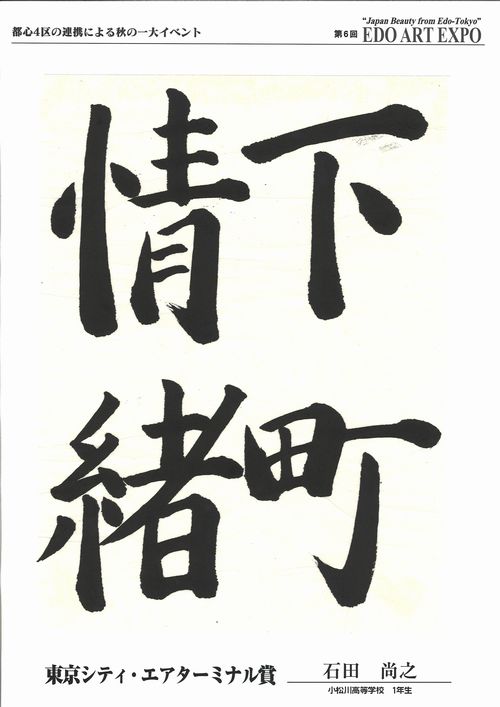 都心4区の連携による秋の一大イベント
"Japan Beauty from Edo-Tokyo"
第6回 EDO ART EXPO
下町
情緒
東京シティ・エアターミナル賞
石田 尚之
小松川高等学校 1年生